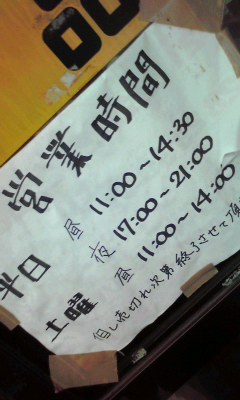 営業時間
半日 昼 11:00～14:30
夜 17:00～21:00
土曜 昼 11:00～14:00
但し売切れ次第終了させて頂